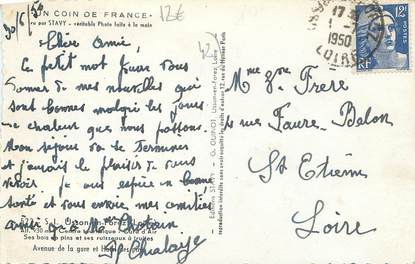 30/6/50
"UN COIN DE FRANCE"
vu par STAVY - véritable Photo faite à la main
12€
Chère Amie,
Ce petit mot pour vous
donner de mes nouvelles qui
sont bonnes malgré les jours
de chaleur que nous passons.
Mon séjour va se terminer
et j'aurai le plaisir de vous
revoir je vous espère en bonne
santé et vous envoie mes amitiés
ainsi qu'à Mme
Usson-en-Forez (Loire)
Alt. 930 m. - Centre - Air
Ses bois de pins et ses ruisseaux à truites
Avenue de la gare et
Editions STAVY - G. GUINOT, Usson-en-Forez, Loire
reproduction interdite sans avoir acquitté les droits d'auteur
12€
17
1-7
1950
LOIRE
POSTES
RF
Mme Vve Frere
4 rue Faure-Belon
St Etienne
Loire